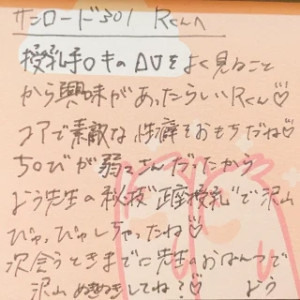 サンロード301 Rくんへ
授乳手コキのAVをよく見ること
から興味があったらしいRくん♡
コアで素敵な性癖をおもちだね♡
ちくびが弱いさんだったから
よう先生の秘技"正座授乳"で沢山
ぴゅっぴゅしちゃったね♡
次会うときまでに先生のおぱんつで
沢山ぬきぬきしてね?♡ よう